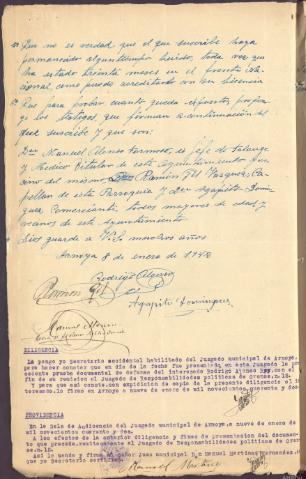 Que no es verdad que el que suscribe haya
permanecido algun tiempo herido, toda vez que
ha estado treinta meses en el frente Na-
cional, como puedo acreditarlo con su licencia
Que para probar cuanto queda expuesto, propon-
go los testigos que forman a continuación del
que suscribe y que son:
Don Manuel Alonso Jefe de Falange
y Medico titular de este Ayuntamiento
del mismo, Don Ramón Gil Vazquez, Ca-
pellan de esta Parroquia y Don Agapito Domin-
guez, Comerciante, todos mayores de edad y
vecinos de este ayuntamiento
Dios guarde a V.S. muchos años
Arnoya 8 de enero de 1942
Rodrigo Alonso
Ramon Gil
Agapito Dominguez
Manuel Alonso
DILIGENCIA
La pongo yo Secretario accidental habilitado del Juzgado municipal de Arnoya,
para hacer constar que en dia de la fecha fue presentada en este Juzgado la pre-
cedente prueba documental de defensa del interesado Rodrigo Alonso con el
fin de su remision al Juzgado de Responsabilidades politicas de Orense, n.12.
Y para que asi conste, con expedicion de copia de la presente diligencia al in-
teresado, lo firmo en Arnoya a nueve de enero de mil novecientos cuarenta y dos.
PROVIDENCIA
En la Sala de Audiencia del Juzgado municipal de Arnoya, a nueve de enero de
mil novecientos cuarenta y dos.
A los efectos de la anterior diligencia y fines de presentacion del documento
que precede, remitase al Juzgado de Responsabilidades politicas de Oren-
se, n.12.
Lo mandó y firma el señor Juez municipal D. Manuel Martinez
que yo Secretario certifico.
Manuel Martinez